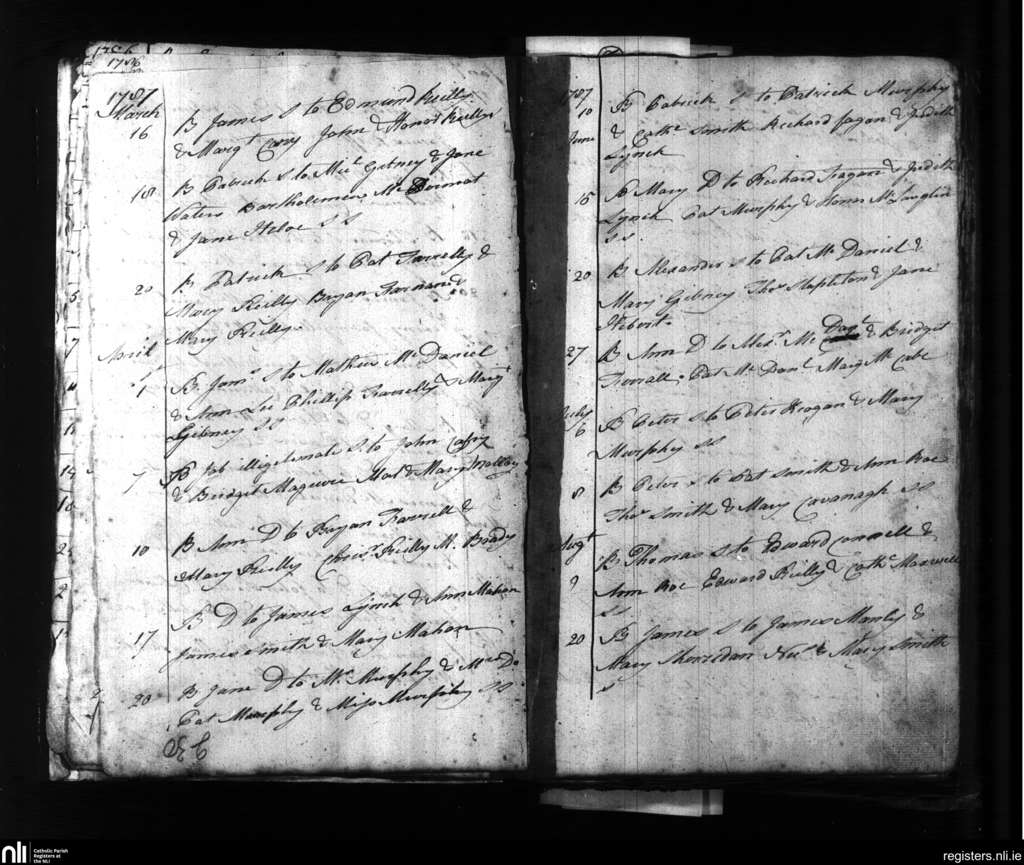 1786
1787
March
16 B James S to Edmund Reilly
& Margt Cary John & Honor Reilly
18 B Patrick S to Micl Gibney & Jane
Waters Bartholemew Mc Dermot
& Jane SS
20 B Patrick S to Pat Farrelly &
Mary Reilly Bryan Farnan &
Mary Reilly
April
1 B Jams S to Mathew Mc Daniel
& Ann Lee Phillip Farrelly & Margt
Gibney SS
7 B S to John
& Bridget Maguire & Mary
10 B Ann D to Bryan Farrell &
Mary Reilly Chrisr Reilly M. Brady
17 B D to James Lynch & Ann Mahon
James Smith & Mary Mahon
20 B Jane D to Mr Murphy & Mrs Do
Pat Murphy & Miss Murphy SS
1787
10 B Patrick S to Patrick Murphy
June & Cathe Smith Richard Fagan & Judith
Lynch
15 B Mary D to Richard Fagan & Judith
Lynch Pat Murphy & Honor Mc Loughlin
SS
20 B Alexander S to Pat Mc Daniel &
Mary Gibney Thos Stapleton & Jane
27 B Ann D to Mc Danl & Bridget
Pat Mc Danl Mary Mc Cabe
July
6 B Peter S to Peter Keogan & Mary
Murphy SS
8 B Peter S to Pat Smith & Ann Roe
Thos Smith & Mary Cavanagh SS
Augt
9 B Thomas S to Edward Connell &
Ann Roe Edward Reilly & Cathe Maxwell
SS
20 B James S to James Manly &
Mary Sheridan & Mary Smith
S
nli
Catholic Parish
Registers at
the NLI
registers.nli.ie